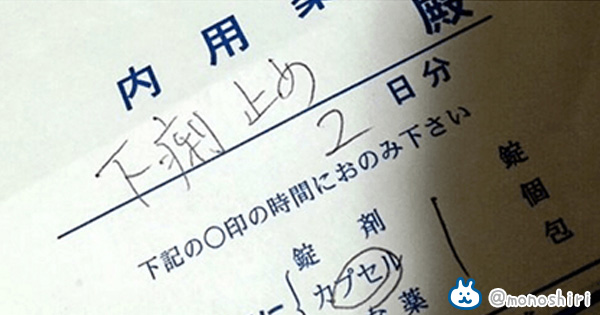 内用
殿
下痢止め
2日分
下記の〇印の時間におのみ下さい
錠剤
カプセル
薬
錠
個
包
@monoshiri